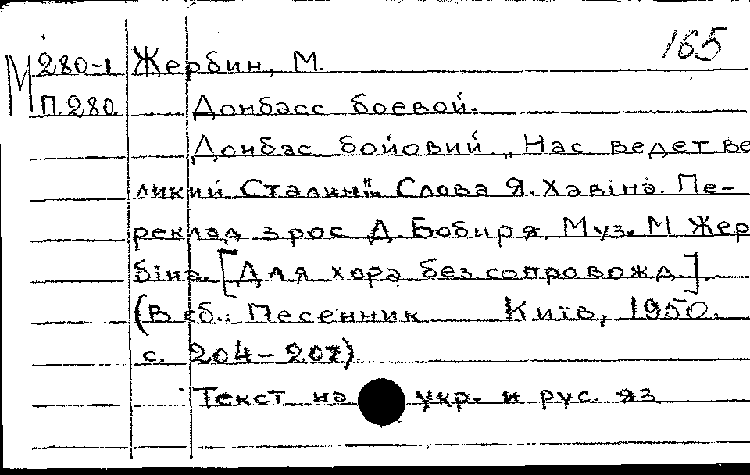 165
М 280-1 Жербин, М.
П.280 Донбасс боевой.
Донбас бойовий. „Нас ведет ве
ликий Сталин". Слова Я. Хавіна. Пе-
реклад з рос Д. Бобиря. Муз. М Жер
біна. [Для хора без сопровожд.].
(В сб.: Песенник Київ, 1950.
с. 204-207)
Текст на укр. и рус. яз